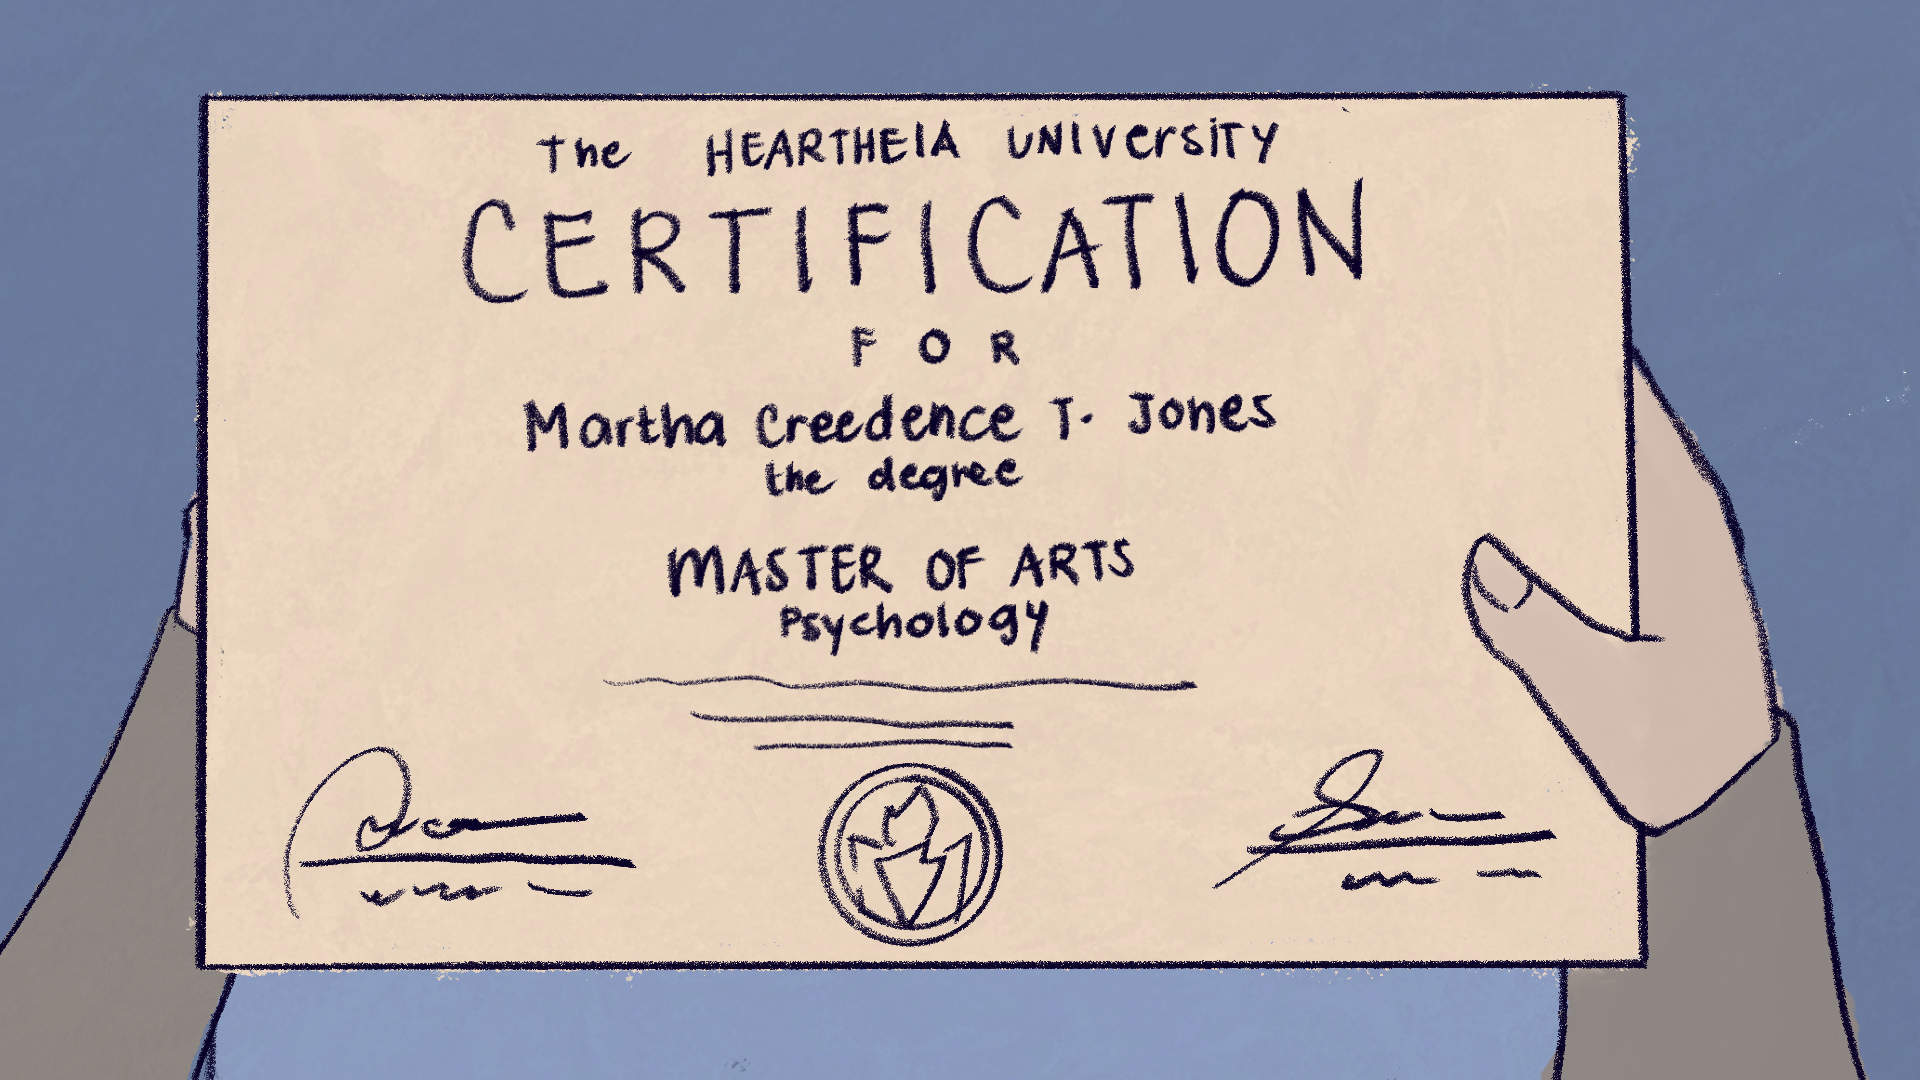 The HEARTHEIA UNIVERSITY
CERTIFICATION
FOR
Martha Creedence T. Jones
the degree
MASTER OF ARTS
Psychology